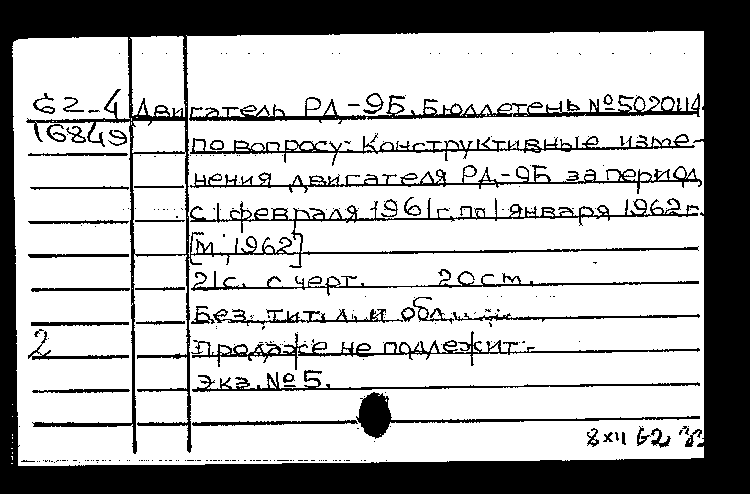 62-4 Двигатель РД-9Б. Бюллетень №5020114
16849 по вопросу: Конструктивные изме-
нения двигателя РД-9Б за период
с 1 февраля 1961г. по 1 января 1962г.
[М., 1962]
21с. с черт. 20см.
Без. тит. л. и обл.
2 Продаже не подлежит.-
Экз. №5.
8 XII 62